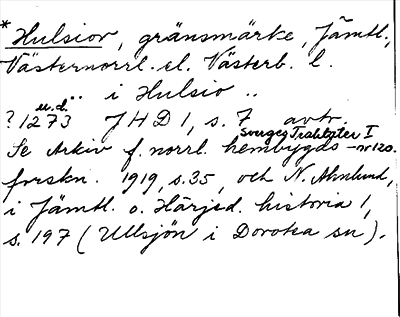 * Hulsior, gränsmärke, Jämtl.,
Västernorrl. el. Västerb. l.
u.d. i Hulsio ..
? 1273 J H D 1, s. 7 avtr.
Sveriges Traktater I
Se Arkiv f. norrl. hembygds- nr 120.
forskn. 1919, s. 35, och N. Ahnlund,
i Jämtl. o. Härjed. historia 1,
s. 197 (Ullsjön i Dorotea sn).